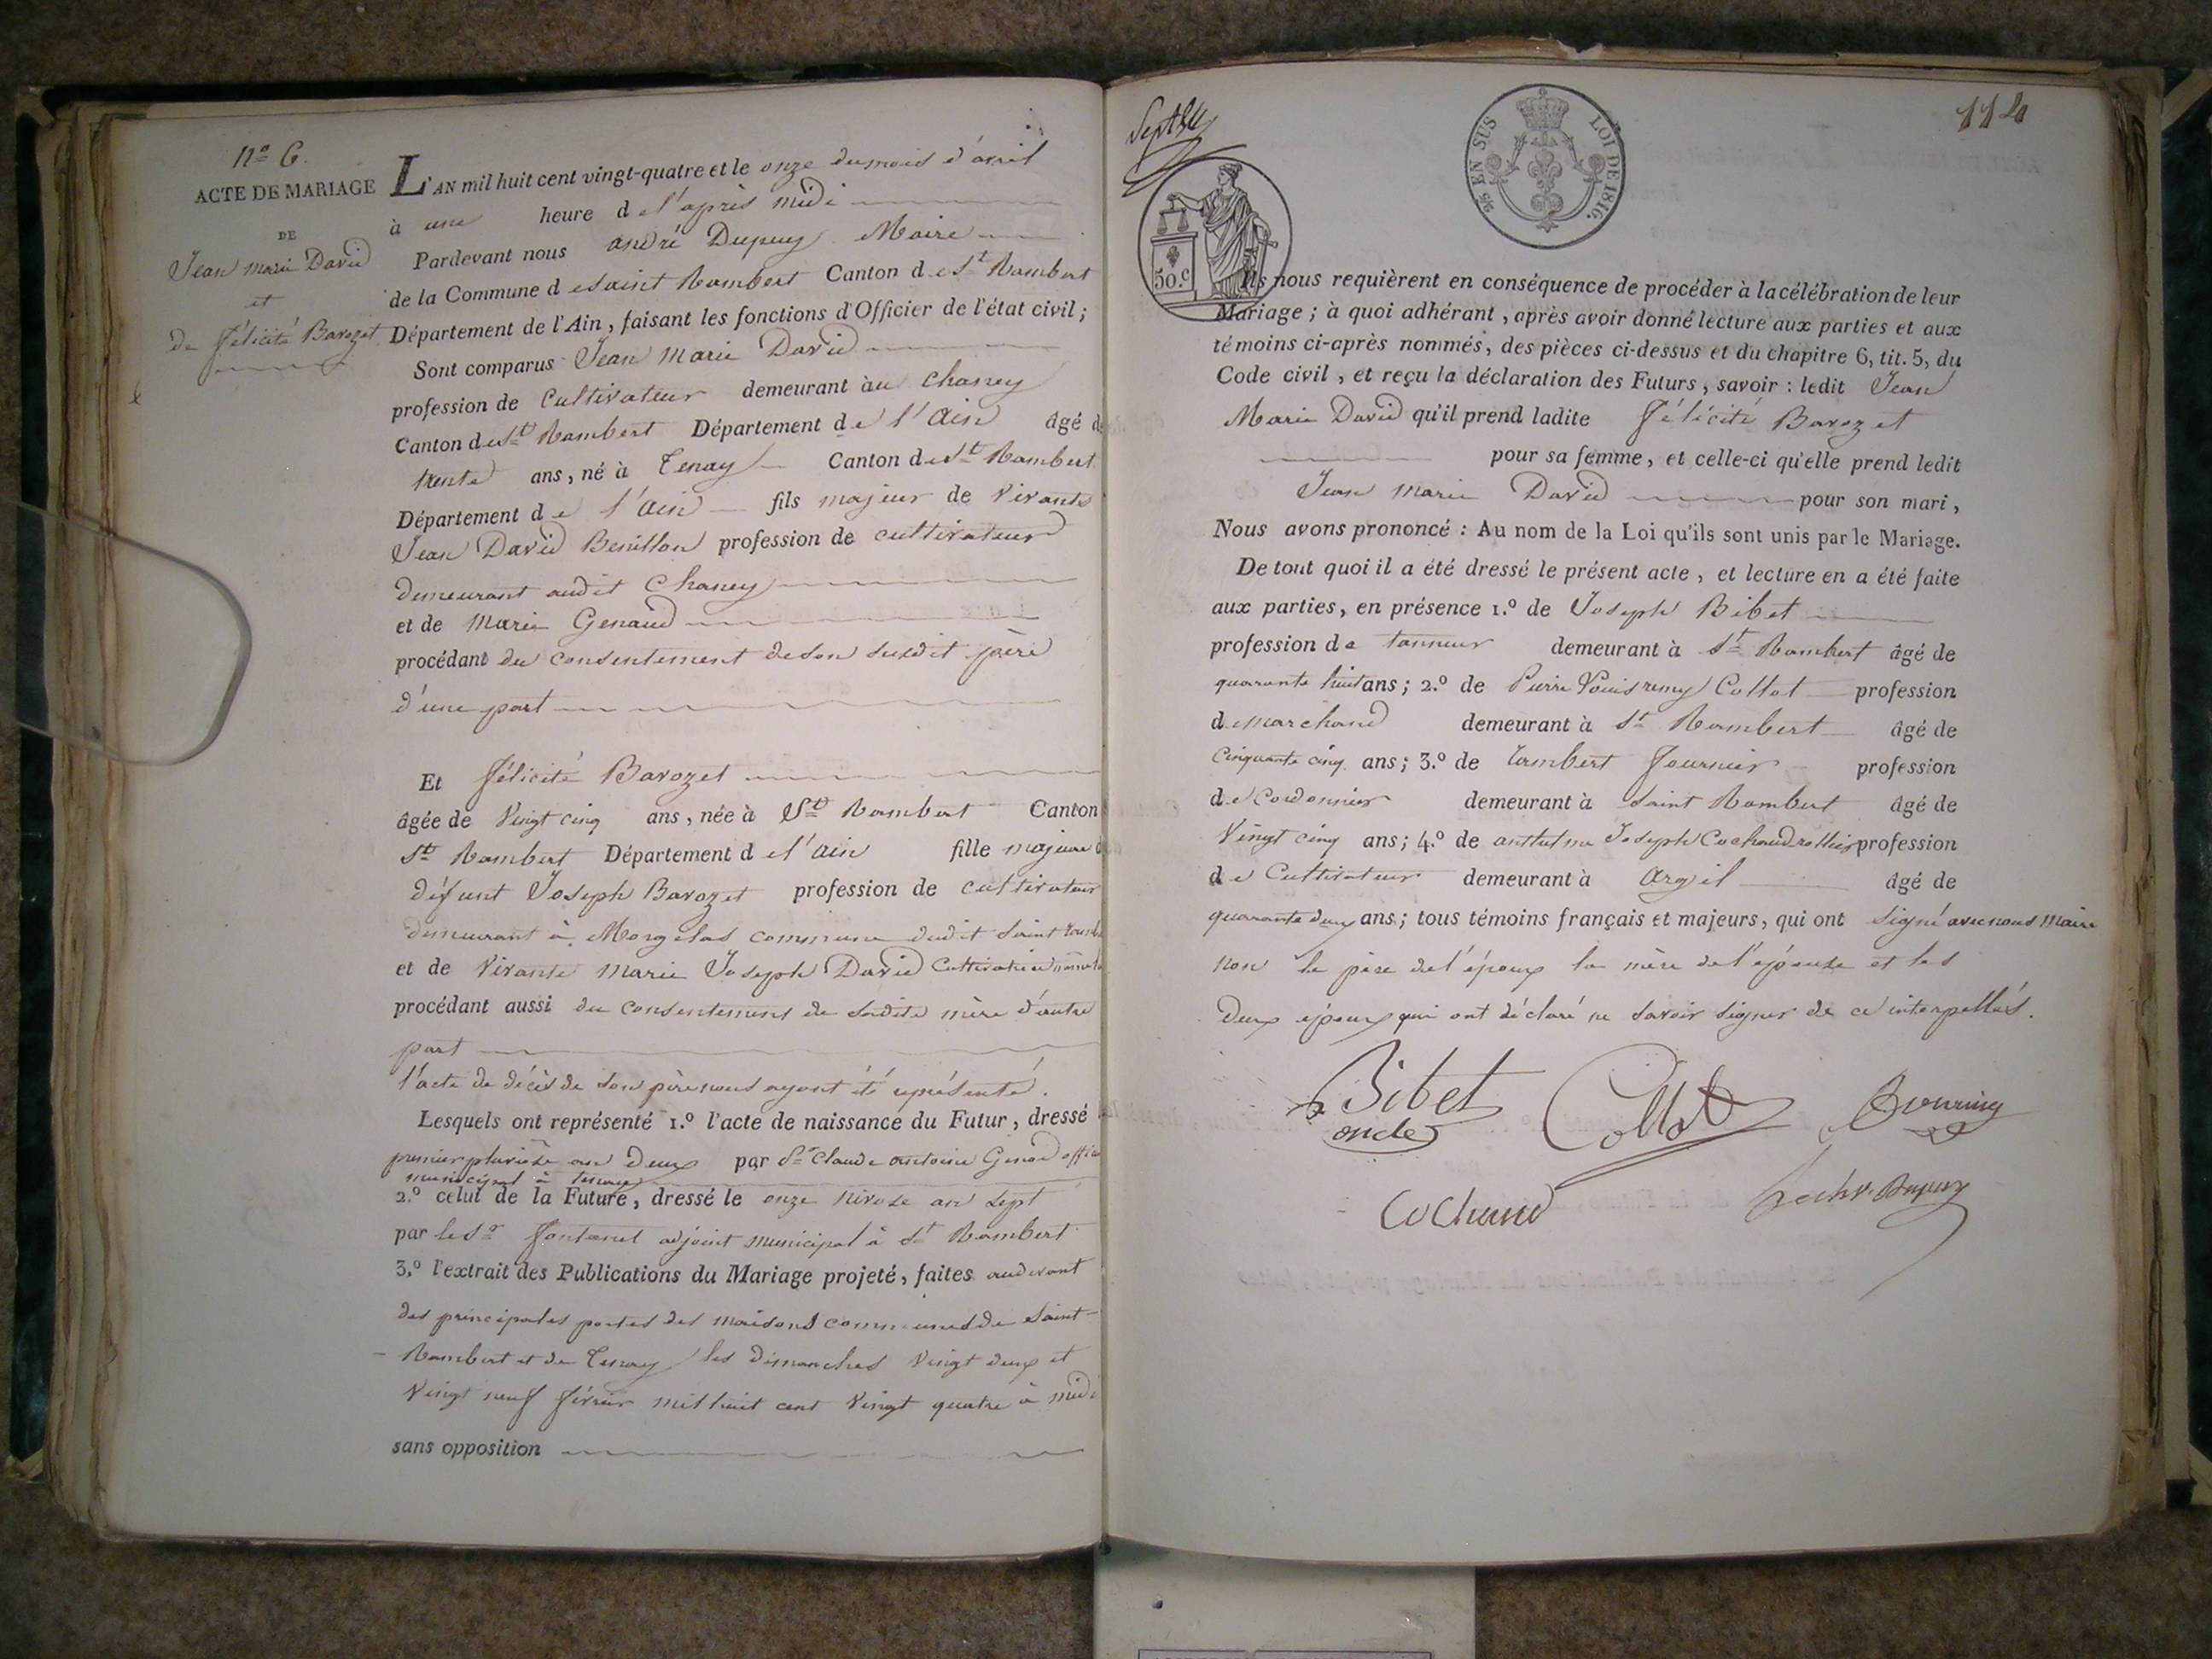 N.º 6.
ACTE DE MARIAGE
DE
Jean marie David
et
de félicité Barozet
L'AN mil huit cent vingt-quatre et le onze du mois d'avril
à une heure d el'après midi
Pardevant nous andré Dupuy Maire
de la Commune d esaint Rambert Canton d e St Rambert
Département de l'Ain, faisant les fonctions d'Officier de l'état civil;
Sont comparus Jean Marie David
profession de Cultivateur demeurant àu Chaney
Canton de St Rambert Département d e l'Ain âgé de
trente ans, né à Tenay Canton de St Rambert
Département d e l'ain fils majeur de vivants
Jean David Benillon profession de cultivateur
demeurant audit Chaney
et de Marie Genaud
procédant du consentement de son susdit père
d'une part
Et félicité Barozet
âgée de vingt cinq ans, née à St Rambert Canton
St Rambert Département d el'ain fille majeure
défunt Joseph Barozet profession de cultivateur
demeurant à Morgelas commune dudit saint
et de vivante marie Joseph David Cultivatrice
procédant aussi du consentement de sadite mère d'autre
part
l'acte de décès de son père nous ayant été représenté.
Lesquels ont représenté 1.º l'acte de naissance du Futur, dressé
premier pluviôse an deux par Sr Claude antoine Genod
municipal à tenay
2.º celui de la Future, dressé le onze nivose an sept
par le Sr fontanel adjoint municipal à St Rambert
3.º l'extrait des Publications du Mariage projeté, faites audevant
des principales portes des maisons communes de Saint-
Rambert et de Tenay les dimanches vingt deux et
vingt neuf février mil huit cent vingt quatre à midi
sans opposition
114
EN SUS LOI DE 1816.
50.c
Ils nous requièrent en conséquence de procéder à la célébration de leur
Mariage; à quoi adhérant, après avoir donné lecture aux parties et aux
témoins ci-après nommés, des pièces ci-dessus et du chapitre 6, tit. 5, du
Code civil, et reçu la déclaration des Futurs, savoir: ledit Jean
Marie David qu'il prend ladite félicité Barozet
pour sa femme, et celle-ci qu'elle prend ledit
Jean marie David pour son mari,
Nous avons prononcé: Au nom de la Loi qu'ils sont unis par le Mariage.
De tout quoi il a été dressé le présent acte, et lecture en a été faite
aux parties, en présence 1.º de Joseph Bibet
profession de tanneur demeurant à St Rambert âgé de
quarante huit ans; 2.º de Pierre Louis remy Collot profession
de marchand demeurant à St Rambert âgé de
Cinquante cinq ans; 3.º de rambert fournier profession
de Cordonnier demeurant à saint Rambert âgé de
vingt cinq ans; 4.º de Joseph Cochaud rollier profession
de Cultivateur demeurant à argil âgé de
quarante deux ans; tous témoins français et majeurs, qui ont signé avec nous Maire
non le père de l'époux la mère de l'épouse et les
deux époux qui ont déclaré ne savoir signer de ce interpellés.
Bibet
oncle
Collot
Cochaud